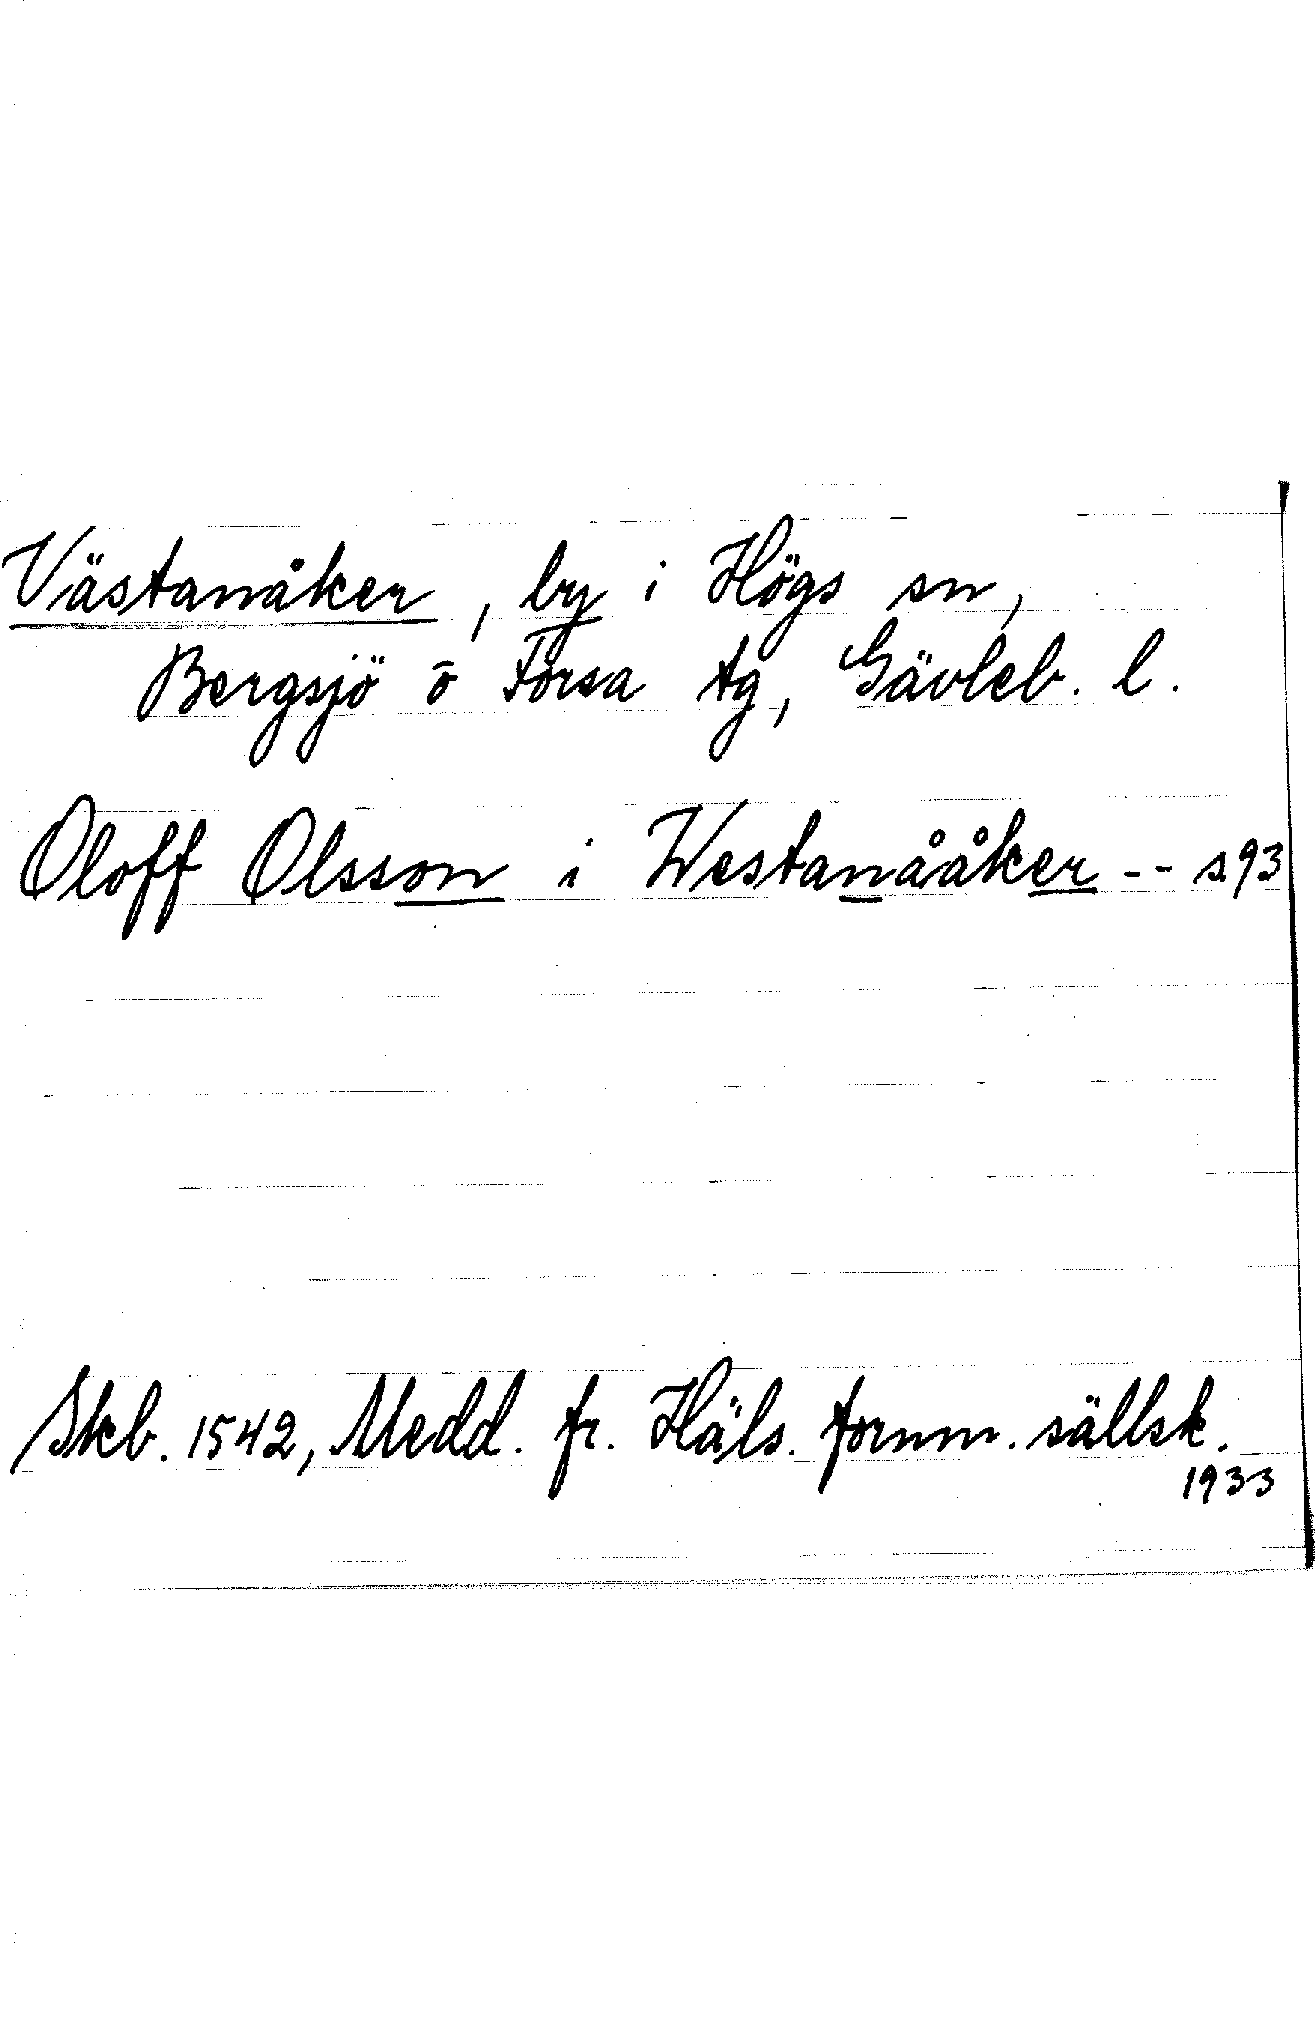 Västanåker, by i Högs sn,
Bergsjö o Forsa tg, Gävleb. l.
Oloff Olsson i Westanååker -- s 93
Skb. 1542, Medd. fr. Häls. fornm. sällsk.
1933